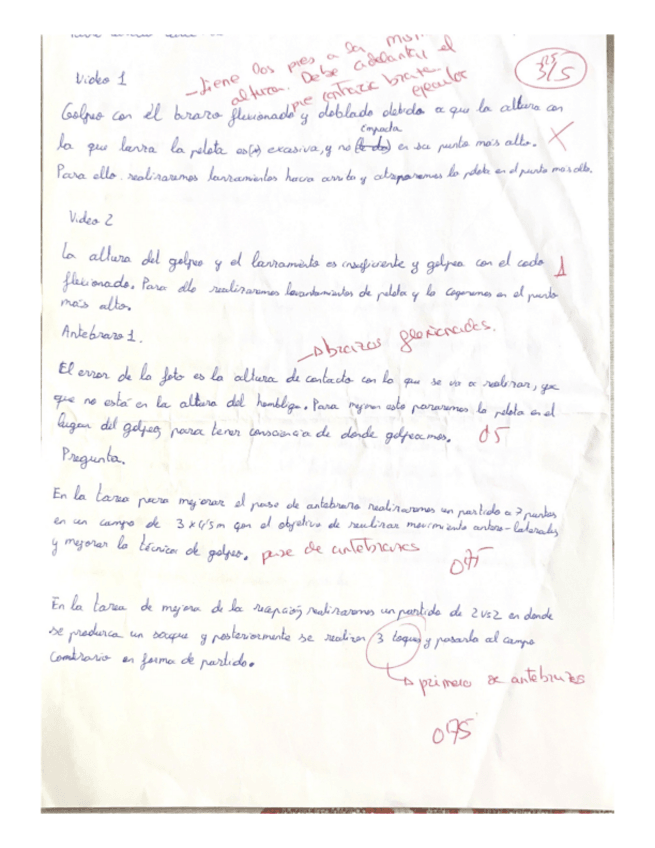 - tiene los pies a la
altura. Debe adelantar el
pie contrario brazo
ejecutor
3'25/5
Video 1
Golpeo con el brazo flexionado y doblado debido a que la altura con
impacta
la que lanza la pelota es(a) excesiva, y no en su punto más alto. X
Para ello realizaremos lanzamientos hacia arriba y atraparemos la pelota en el punto mas alto.
Video 2
La altura del golpeo y el lanzamiento es insuficiente y golpea con el codo 1
flexionado. Para ello realizaremos levantamientos de pelota y la cogeremos en el punto
más alto.
Antebrazo 1.
brazos flexionados.
El error de la foto es la altura de contacto con la que se va a realizar, ya
que no está en la altura del hombligo. Para mejorar esto pararemos la pelota en el
lugar del golpeo, para tener consciencia de donde golpeamos. 0'5
Pregunta.
En la tarea para mejorar el pase de antebrazo realizaremos un partido a 7 puntos
en un campo de 3 x 4'5 m con el objetivo de realizar movimiento antero-laterales
y mejorar la técnica de golpeo. pase de antebrazos
0'75
En la tarea de mejora de la recepción, realizaremos un partido de 2vs2 en donde
se produzca un saque y posteriormente se realizan 3 toques y pasarlo al campo
contrario en forma de partido.
primero de antebrazos
0'75